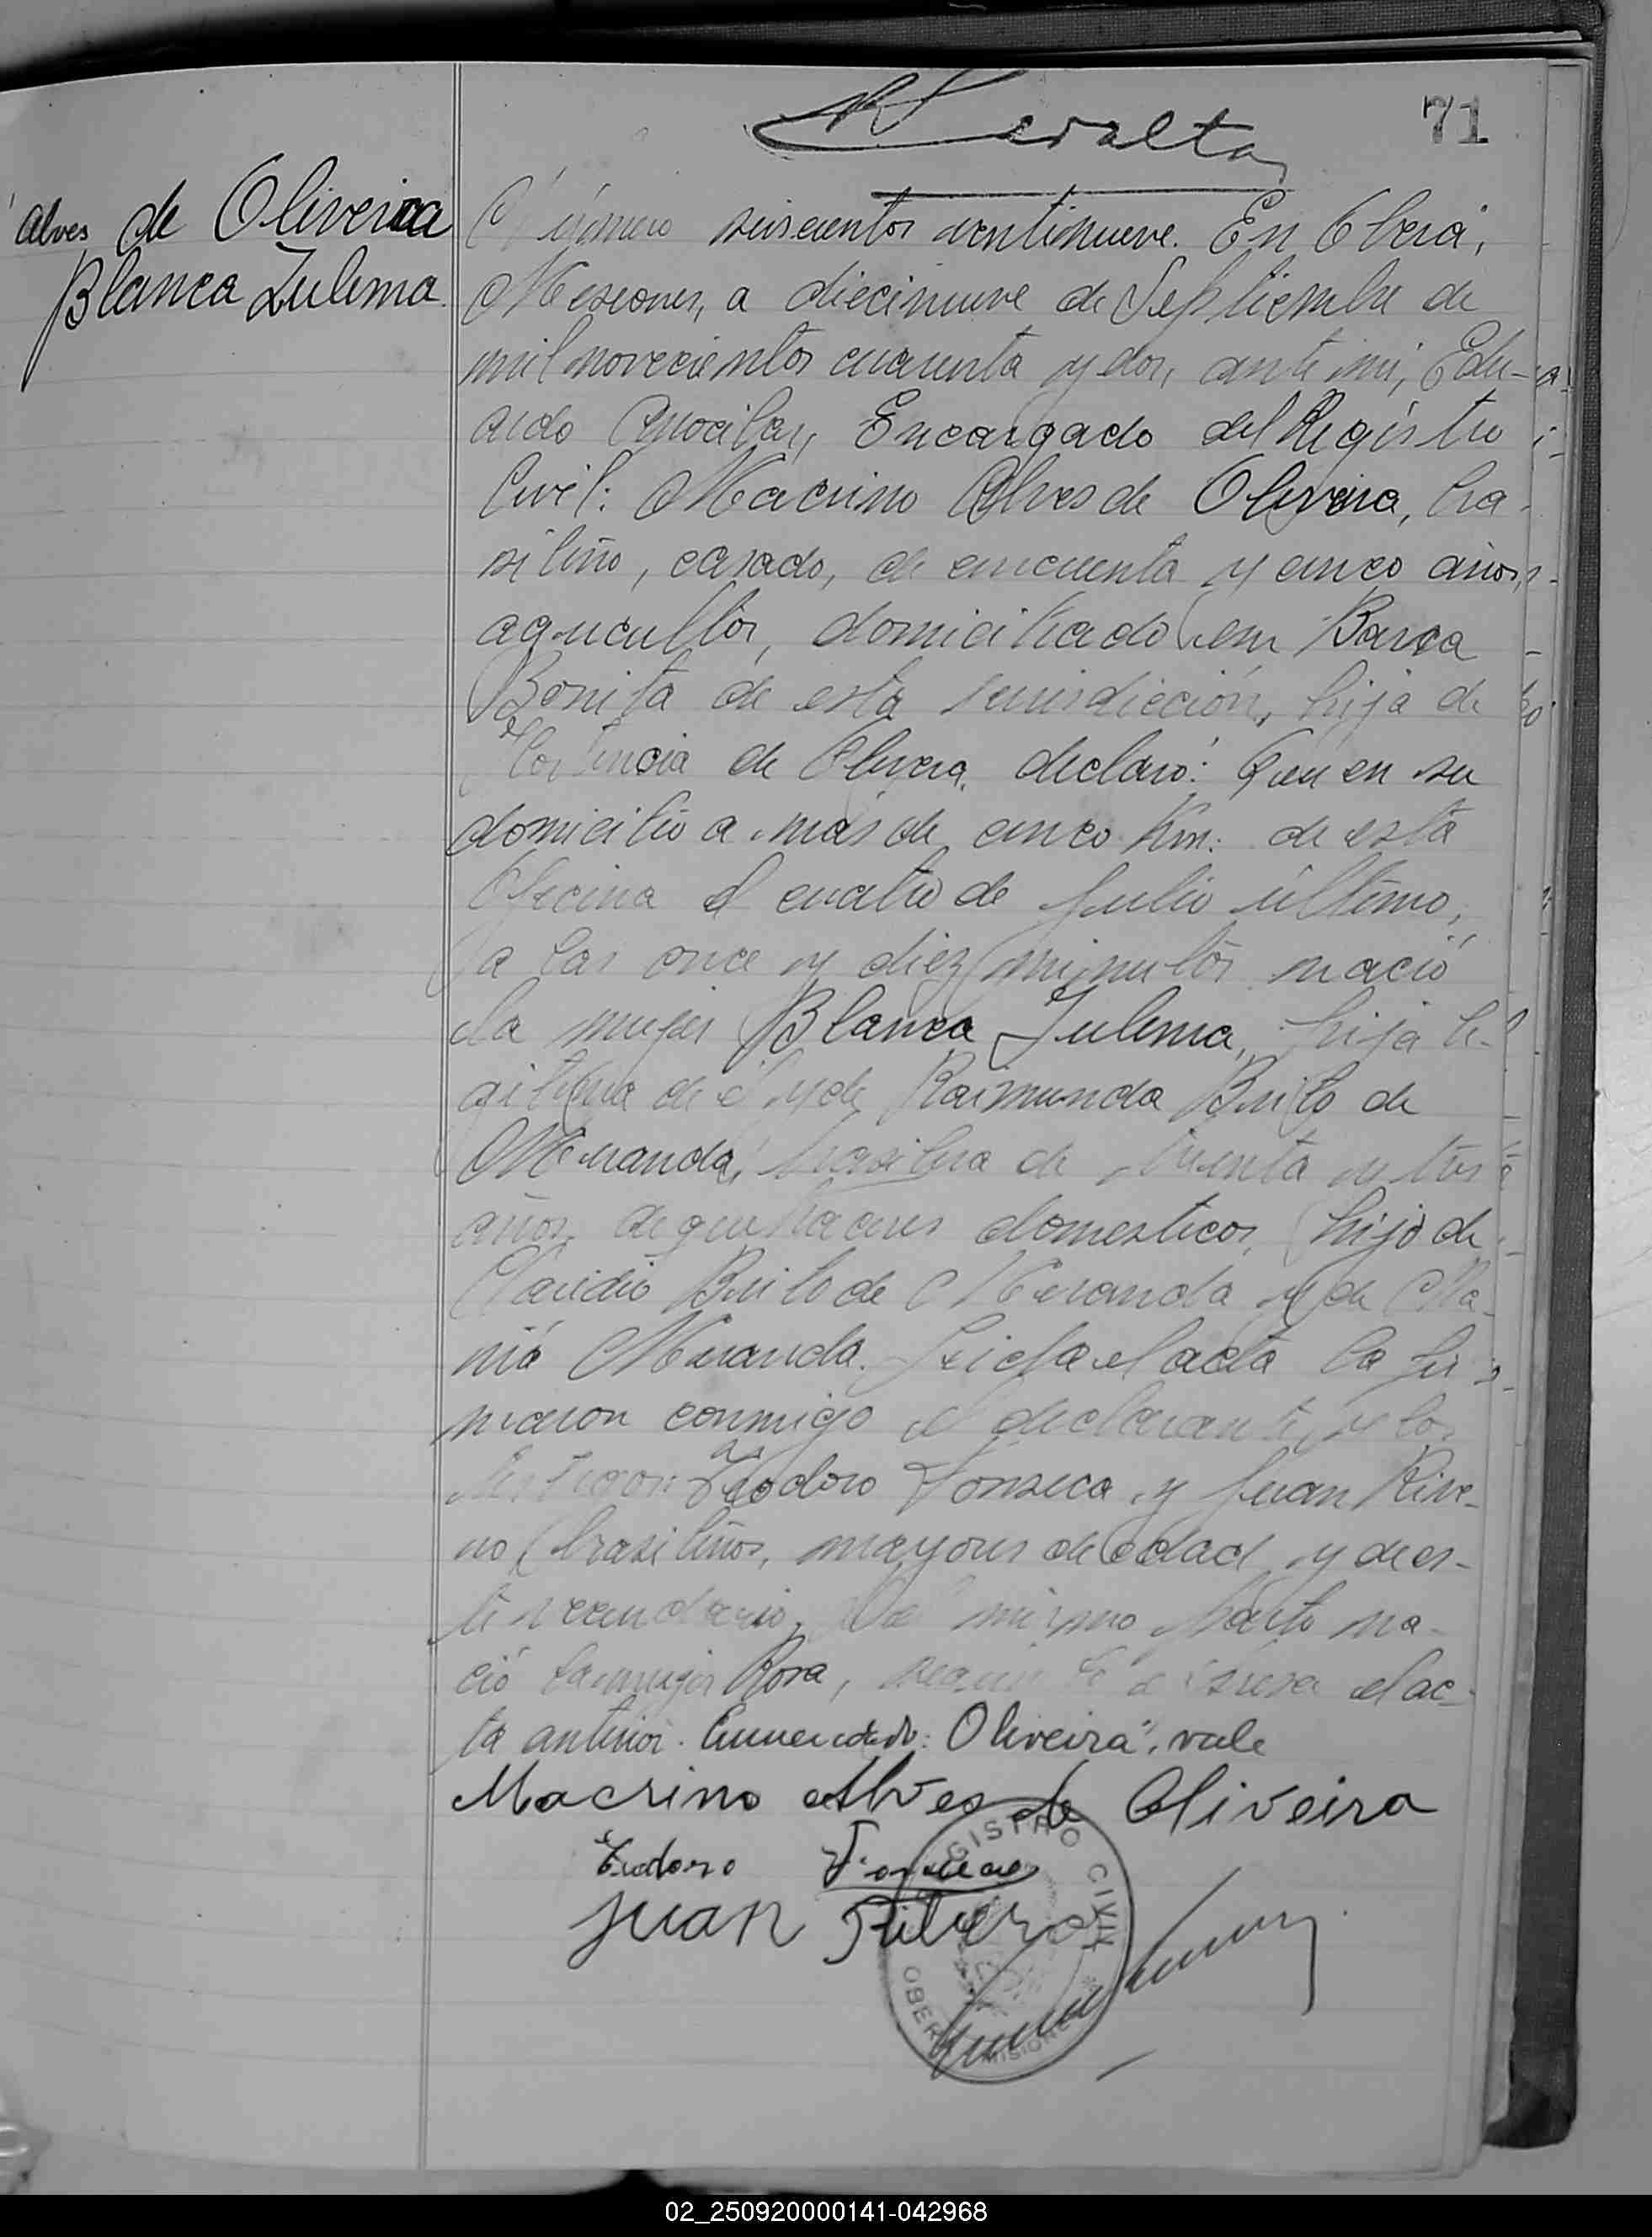 71
Peralta
Alves de Oliveira
Blanca Zulema
Número seiscientos veintinueve. En Oberá,
Misiones, a diecinueve de Septiembre de
mil novecientos cuarenta y dos, ante mi, Edu-
ardo Encargado del Registro
Civil: Macrino Alves de Oliveira, bra-
sileño, casado, de cincuenta y cinco años,
agricultor, domiciliado en Barra
Bonita de esta jurisdicción, hija de
de Olivera, declaró: Que en su
domicilio a más de cinco Km: de esta
Oficina el cuatro de Julio último,
a las once y diez minutos nació
la mujer Blanca Zulema, hija le-
gitima de él y de Raimunda Brito de
Miranda, brasilera de treinta y tres
años, de quehaceres domesticos, hija de
Claudio Brito de Miranda y de Ma-
ria Miranda. Leida el acta la fir-
maron conmigo el declarante y los
testigos: Teodoro Fonseca y Juan Rive-
ro, brasileños, mayores de edad y de es-
te vecindario. Del mismo parto na-
ció la mujer Rosa, el ac-
ta anterior. Enmendado: Oliveira", vale
Macrino Alves de Oliveira
Teodoro Fonseca
Juan Rivero
REGISTRO CIVIL
OBERÁ MISIONES
02_250920000141-042968